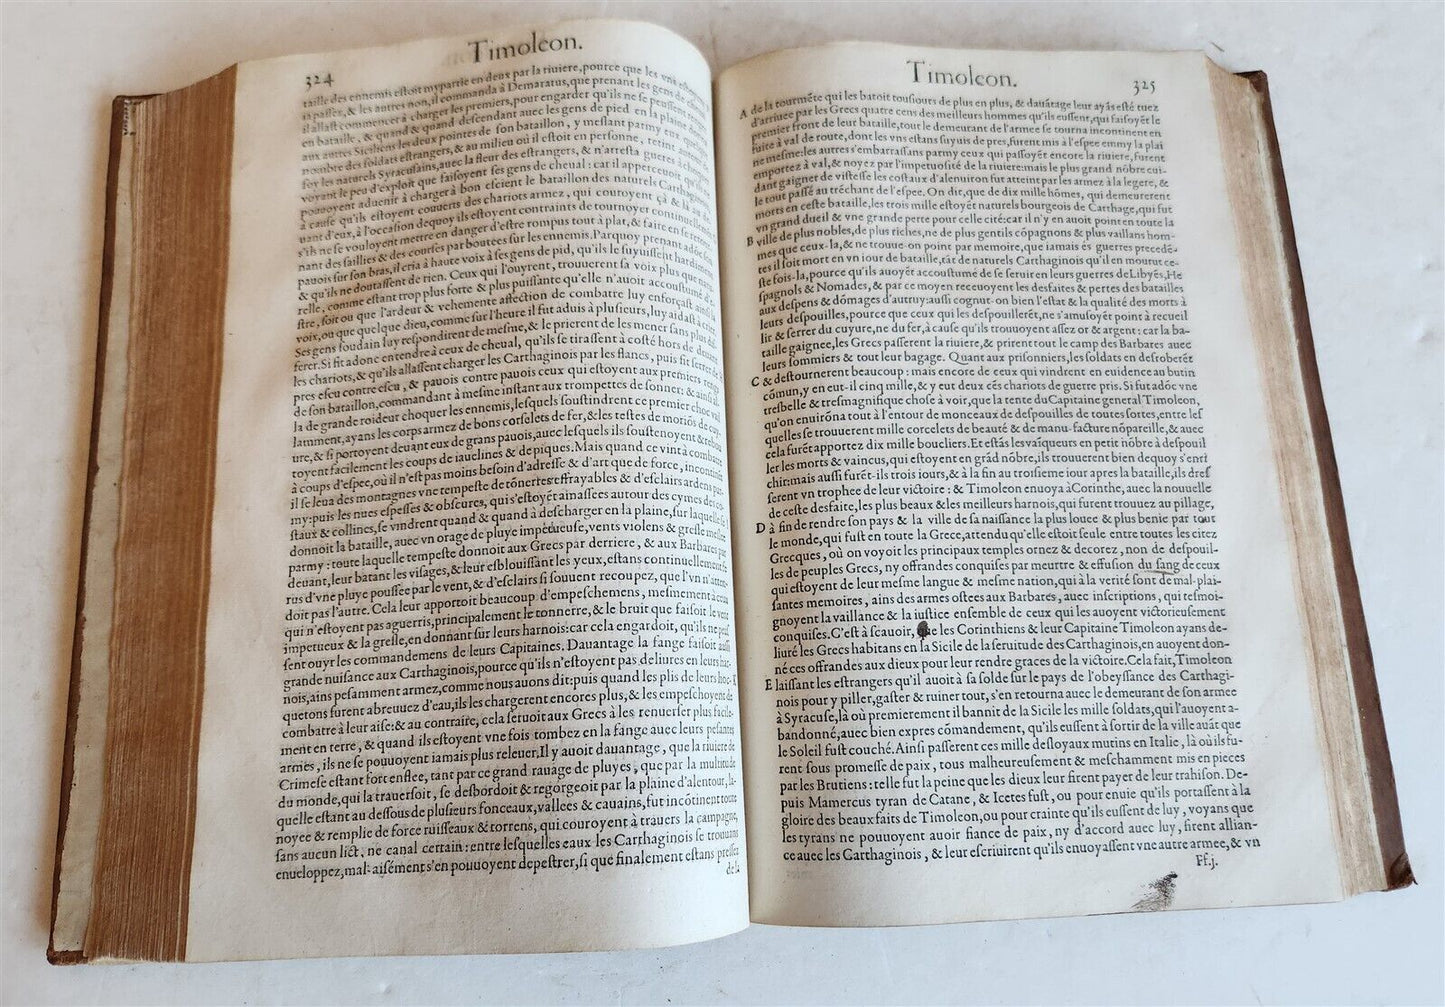 324
Timoleon.
taille des ennemis estoit mypartie en deux par la riuiere, pource que les vns estoient
ia passez, & les autres non, il commanda à Demaratus, que prenant les gens de cheual
il allast commencer à charger les premiers, pour engarder qu'ils ne se peussent ranger
en bataille, & quand & quand descendant auec les gens de pied en la plaine donna
aux autres Siciliens les deux pointes de son bataillon, y meslant parmy eux quelque
nombre des soldats estrangers, & au milieu où il estoit en personne, retint autour de
soy les naturels Syracusains, auec la fleur des estrangers, & n'arresta gueres à choquer,
voyant le peu d'exploit que faisoyent ses gens de cheual: car il apperceuoit qu'ils ne
pouuoyent aduenir à charger à bon escient le bataillon des naturels Carthaginois,
à cause qu'ils estoyent couuerts des chariots armez, qui couroyent çà & là au de-
uant d'eux, à l'occasion dequoy ils estoyent contraints de tournoyer continuellement
s'ils ne se vouloyent mettre en danger d'estre rompus tout à plat, & faire en se retour-
nant des saillies & des courses par boutees sur les ennemis. Parquoy prenant adõc son
pauois sur son bras, il cria à haute voix à ses gens de pied, qu'ils le suyuissent hardiment
& qu'ils ne doutassent de rien. Ceux qui l'ouyrent, trouuerent sa voix plus que natu-
relle, comme estant trop plus forte & plus puissante qu'elle n'auoit accoustumé d'e-
stre, soit ou que l'ardeur & vehemente affection de combatre luy enforçast ainsi la
voix, ou que quelque dieu, comme sur l'heure il fut aduis à plusieurs, luy aidast à crier.
Ses gens soudain luy respondirent de mesme, & le prierent de les mener sans plus dif-
ferer. Si fit adonc entendre à ceux de cheual, qu'ils se tirassent à costé hors de deuant
les chariots, & qu'ils allassent charger les Carthaginois par les flancs, puis fit serrer de
pres escu contre escu, & pauois contre pauois ceux qui estoyent aux premiers rengs
de son bataillon, commandant à mesme instant aux trompettes de sonner: & ainsi al-
la de grande roideur choquer les ennemis, lesquels soustindrent ce premier choc vail-
lamment, ayans les corps armez de bons corselets de fer, & les testes de moriõs de cuy-
ure, & si portoyent deuant eux de grans pauois, auec lesquels ils soustenoyent & rebou-
toyent facilement les coups de iauelines & de piques. Mais quand ce vint à combatre
à coups d'espee, où il n'est pas moins besoin d'adresse & d'art que de force, incontinẽt
il se leua des montagnes vne tempeste de tõnerres effrayables & d'esclairs ardens par-
my: puis les nues espesses & obscures, qui s'estoyẽt amassees autour des cymes des co-
staux & collines, se vindrent quand & quand à descharger en la plaine, sur laquelle se
donnoit la bataille, auec vn orage de pluye impetueuse, vents violens & gresle meslee
parmy: toute laquelle tempeste donnoit aux Grecs par derriere, & aux Barbares par
deuant, leur batant les visages, & leur esblouissant les yeux, estans continuellement fe-
rus d'vne pluye poussee par le vent, & d'esclairs si souuent recoupez, que l'vn n'atten-
doit pas l'autre. Cela leur apportoit beaucoup d'empeschemens, mesmement à ceux
qui n'estoyent pas aguerris, principalement le tonnerre, & le bruit que faisoit le vent
impetueux & la gresle, en donnant sur leurs harnois: car cela engardoit, qu'ils ne peus-
sent ouyr les commandemens de leurs Capitaines. Dauantage la fange faisoit aussi
grande nuisance aux Carthaginois, pource qu'ils n'estoyent pas deliures en leurs har-
nois, ains pesamment armez, comme nous auons dit: puis quand les plis de leurs hoc-
K
quetons furent abreuuez d'eau, ils les chargerent encores plus, & les empeschoyent de
combatre à leur aise: & au contraire, cela seruoit aux Grecs à les renuerser plus facile-
ment en terre, & quand ils estoyent vne fois tombez en la fange auec leurs pesantes
armes, ils ne se pouuoyent iamais plus releuer. Il y auoit dauantage, que la riuiere de
Crimese estant fort enflee, tant par ce grand rauage de pluyes, que par la multitude
du monde, qui la trauersoit, se desbordoit & regorgeoit par la plaine d'alentour, la-
quelle estant au dessous de plusieurs fonceaux, vallees & cauains, fut incõtinent toute
noyee & remplie de force ruisseaux & torrens, qui couroyent à trauers la campagne,
sans aucun lict, ne canal certain: entre lesquelles eaux les Carthaginois se trouuans
enueloppez, mal-aisément s'en pouuoyent depestrer, si que finalement estans pressez
de la
Timoleon.
325
A de la tourmẽte qui les batoit tousiours de plus en plus, & dauãtage leur ayãs esté tuez
d'arriuee par les Grecs quatre cens des meilleurs hommes qu'ils eussent, qui faisoyẽt le
premier front de leur bataille, tout le demeurant de l'armee se tourna incontinent en
fuite à val de route, dont les vns estans suyuis de pres, furent mis à l'espee emmy la plai
ne mesme: les autres s'embarrassans parmy ceux qui passoyẽt encore la riuiere, furent
emportez à val, & noyez par l'impetuosité de la riuiere: mais le plus grand nõbre cui-
dant gaigner de vistesse les costaux d'alenuiron fut atteint par les armez à la legere, &
le tout passé au trẽchant de l'espee. On dit, que de dix mille hõmes, qui demeurerent
morts en ceste bataille, les trois mille estoyẽt naturels bourgeois de Carthage, qui fut
vn grand dueil & vne grande perte pour celle cité: car il n'y en auoit point en toute la
B ville de plus nobles, de plus riches, ne de plus gentils cõpagnons & plus vaillans hom-
mes que ceux-la, & ne trouue-on point par memoire, que iamais és guerres precedẽ-
tes il soit mort en vn iour de bataille, tãt de naturels Carthaginois qu'il en mourut ce-
ste fois-la, pource qu'ils auoyẽt accoustumé de se seruir en leurs guerres de Libyẽs, He
spagnols & Nomades, & par ce moyen receuoyent les desfaites & pertes des batailles
aux despens & dõmages d'autruy: aussi cognut-on bien l'estat & la qualité des morts à
leurs despouilles, pource que ceux qui les despouillerẽt, ne s'amusoyẽt point à recueil
lir & serrer du cuyure, ne du fer, à cause qu'ils trouuoyent assez or & argent: car la ba-
taille gaignee, les Grecs passerent la riuiere, & prirent tout le camp des Barbares auec
leurs sommiers & tout leur bagage. Quant aux prisonniers, les soldats en desroberẽt
C & destournerent beaucoup: mais encore de ceux qui vindrent en euidence au butin
cõmun, y en eut-il cinq mille, & y eut deux cẽs chariots de guerre pris. Si fut adõc vne
tresbelle & tresmagnifique chose à voir, que la tente du Capitaine general Timoleon,
qu'on enuirõna tout à l'entour de monceaux de despouilles de toutes sortes, entre les
quelles se trouuerent mille corcelets de beauté & de manu-facture nõpareille, & auec
cela furẽt apportez dix mille boucliers. Et estãs les vaĩqueurs en petit nõbre à despouil
ler les morts & vaincus, qui estoyent en grãd nõbre, ils trouuerent bien dequoy s'enri
chir: mais aussi furẽt-ils trois iours, & à la fin au troisieme iour apres la bataille, ils dres
serent vn trophee de leur victoire: & Timoleon enuoya à Corinthe, auec la nouuelle
de ceste desfaite, les plus beaux & les meilleurs harnois, qui furent trouuez au pillage,
D à fin de rendre son pays & la ville de sa naissance la plus louee & plus benie par tout
le monde, qui fust en toute la Grece, attendu qu'elle estoit seule entre toutes les citez
Grecques, où on voyoit les principaux temples ornez & decorez, non de despouil-
les de peuples Grecs, ny offrandes conquises par meurtre & effusion du sang de ceux
qui estoyent de leur mesme langue & mesme nation, qui à la verité sont de mal-plai-
santes memoires, ains des armes ostees aux Barbares, auec inscriptions, qui tesmoi-
gnoyent la vaillance & la iustice ensemble de ceux qui les auoyent victorieusement
conquises. C'est à scauoir, que les Corinthiens & leur Capitaine Timoleon ayans de-
liuré les Grecs habitans en la Sicile de la seruitude des Carthaginois, en auoyent don-
né ces offrandes aux dieux pour leur rendre graces de la victoire. Cela fait, Timoleon
E laissant les estrangers qu'il auoit à sa solde sur le pays de l'obeyssance des Carthagi-
nois pour y piller, gaster & ruiner tout, s'en retourna auec le demeurant de son armee
à Syracuse, là où premierement il bannit de la Sicile les mille soldats, qui l'auoyent a-
bandonné, auec bien expres cõmandement, qu'ils eussent à sortir de la ville auãt que
le Soleil fust couché. Ainsi passerent ces mille desloyaux mutins en Italie, là où ils fu-
rent sous promesse de paix, tous malheureusement & meschamment mis en pieces
par les Brutiens: telle fut la peine que les dieux leur firent payer de leur trahison. De-
puis Mamercus tyran de Catane, & Icetes fust, ou pour enuie qu'ils portassent à la
gloire des beaux faits de Timoleon, ou pour crainte qu'ils eussent de luy, voyans que
les tyrans ne pouuoyent auoir fiance de paix, ny d'accord auec luy, firent allian-
ce auec les Carthaginois, & leur escriuirent qu'ils enuoyassent vne autre armee, & vn
Ff.j.